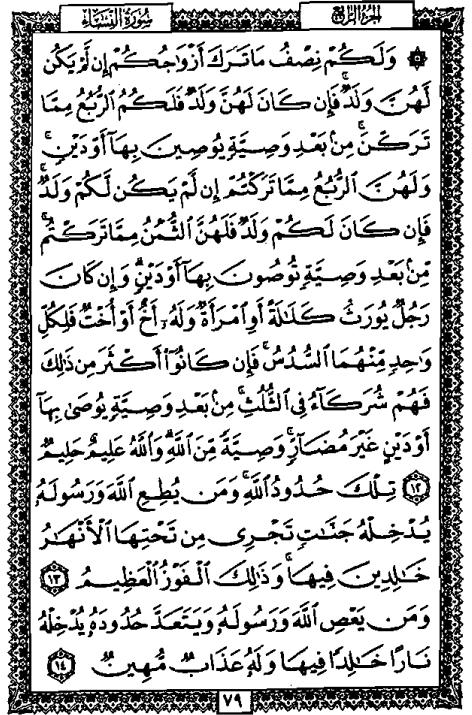 سُورَةُ النِّسَاءِ الجزء الرابع
۞ وَلَكُمْ نِصْفُ مَا تَرَكَ أَزْوَٰجُكُمْ إِن لَّمْ يَكُن
لَّهُنَّ وَلَدٌ ۚ فَإِن كَانَ لَهُنَّ وَلَدٌ فَلَكُمُ الرُّبُعُ مِمَّا
تَرَكْنَ ۚ مِنۢ بَعْدِ وَصِيَّةٍ يُوصِينَ بِهَآ أَوْ دَيْنٍ ۚ
وَلَهُنَّ الرُّبُعُ مِمَّا تَرَكْتُمْ إِن لَّمْ يَكُن لَّكُمْ وَلَدٌ ۚ
فَإِن كَانَ لَكُمْ وَلَدٌ فَلَهُنَّ الثُّمُنُ مِمَّا تَرَكْتُم ۚ
مِّنۢ بَعْدِ وَصِيَّةٍ تُوصُونَ بِهَآ أَوْ دَيْنٍ ۗ وَإِن كَانَ
رَجُلٌ يُورَثُ كَلَٰلَةً أَوِ امْرَأَةٌ وَلَهُۥٓ أَخٌ أَوْ أُخْتٌ فَلِكُلِّ
وَٰحِدٍ مِّنْهُمَا السُّدُسُ ۚ فَإِن كَانُوٓا۟ أَكْثَرَ مِن ذَٰلِكَ
فَهُمْ شُرَكَآءُ فِى الثُّلُثِ ۚ مِنۢ بَعْدِ وَصِيَّةٍ يُوصَىٰ بِهَآ
أَوْ دَيْنٍ غَيْرَ مُضَآرٍّ ۚ وَصِيَّةً مِّنَ اللَّهِ ۗ وَاللَّهُ عَلِيمٌ حَلِيمٌ
١٢ تِلْكَ حُدُودُ اللَّهِ ۚ وَمَن يُطِعِ اللَّهَ وَرَسُولَهُۥ
يُدْخِلْهُ جَنَّٰتٍ تَجْرِى مِن تَحْتِهَا الْأَنْهَٰرُ
خَٰلِدِينَ فِيهَا ۚ وَذَٰلِكَ الْفَوْزُ الْعَظِيمُ ١٣
وَمَن يَعْصِ اللَّهَ وَرَسُولَهُۥ وَيَتَعَدَّ حُدُودَهُۥ يُدْخِلْهُ
نَارًا خَٰلِدًا فِيهَا وَلَهُۥ عَذَابٌ مُّهِينٌ ١٤
٧٩